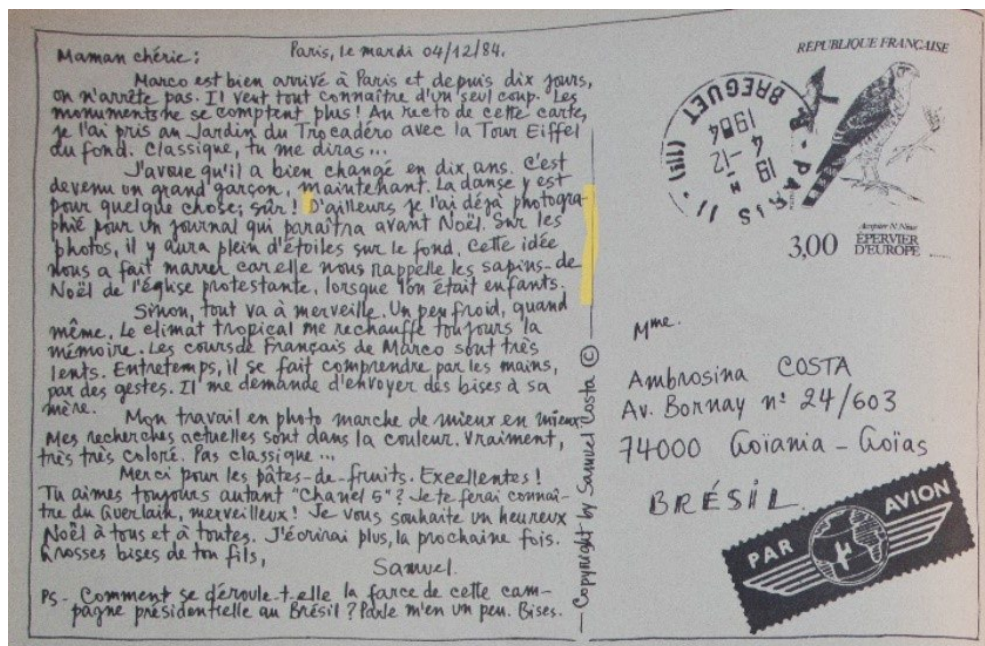 Maman chérie:
Paris, le mardi 04/12/84.
Marco est bien arrivé à Paris et depuis dix jours,
on n'arrête pas. Il veut tout connaître d'un seul coup. Les
monuments ne se comptent plus! Au recto de cette carte,
je l'ai pris au Jardin du Trocadéro avec la Tour Eiffel
au fond. Classique, tu me diras...
J'avoue qu'il a bien changé en dix ans. C'est
devenu un grand garçon, maintenant. La danse y est
pour quelque chose; sûr! D'ailleurs je l'ai déjà photogra-
phié pour un journal qui paraîtra avant Noël. Sur les
photos, il y aura plein d'étoiles sur le fond. Cette idée
nous a fait marrer car elle nous rappelle les sapins-de
Noël de l'église protestante, lorsque l'on était enfants.
Sinon, tout va à merveille. Un peu froid, quand
même. Le climat tropical me rechauffe toujours la
mémoire. Les cours de Français de Marco sont très
lents. Entretemps, il se fait comprendre par les mains,
par des gestes. Il me demande d'envoyer des bises à sa
mère.
Mon travail en photo marche de mieux en mieux.
Mes recherches actuelles sont dans la couleur. Vraiment,
très très coloré. Pas classique...
Merci pour les pâtes-de-fruits. Excellentes!
Tu aimes toujours autant "Chanel 5"? Je te ferai connaî-
tre du Guerlain, merveilleux! Je vous souhaite un heureux
Noël à tous et à toutes. J'écrirai plus, la prochaine fois.
Grosses bises de ton fils,
Samuel.
PS- Comment se déroule-t-elle la farce de cette cam-
pagne présidentielle au Brésil? Parle m'en un peu. Bises.
— Copyright by Samuel Costa ©
RÉPUBLIQUE FRANÇAISE
PARIS 11 - BREGUET (111)
19 H
4 -12
1984
3,00
ÉPERVIER
D'EUROPE
Mme.
Ambrosina COSTA
Av. Bornay nº 24/603
74000 Goïania - Goïas
BRÉSIL
PAR AVION